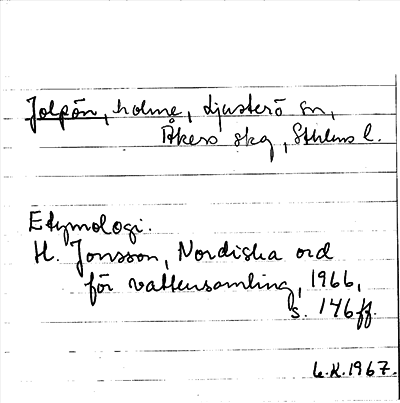 Jolpön, holme, Ljusterö sn,
Åkers skg, Sthlms l.
Etymologi.
H. Jonsson, Nordiska ord
för vattensamling, 1966,
s. 146 ff.
L.K. 1967.